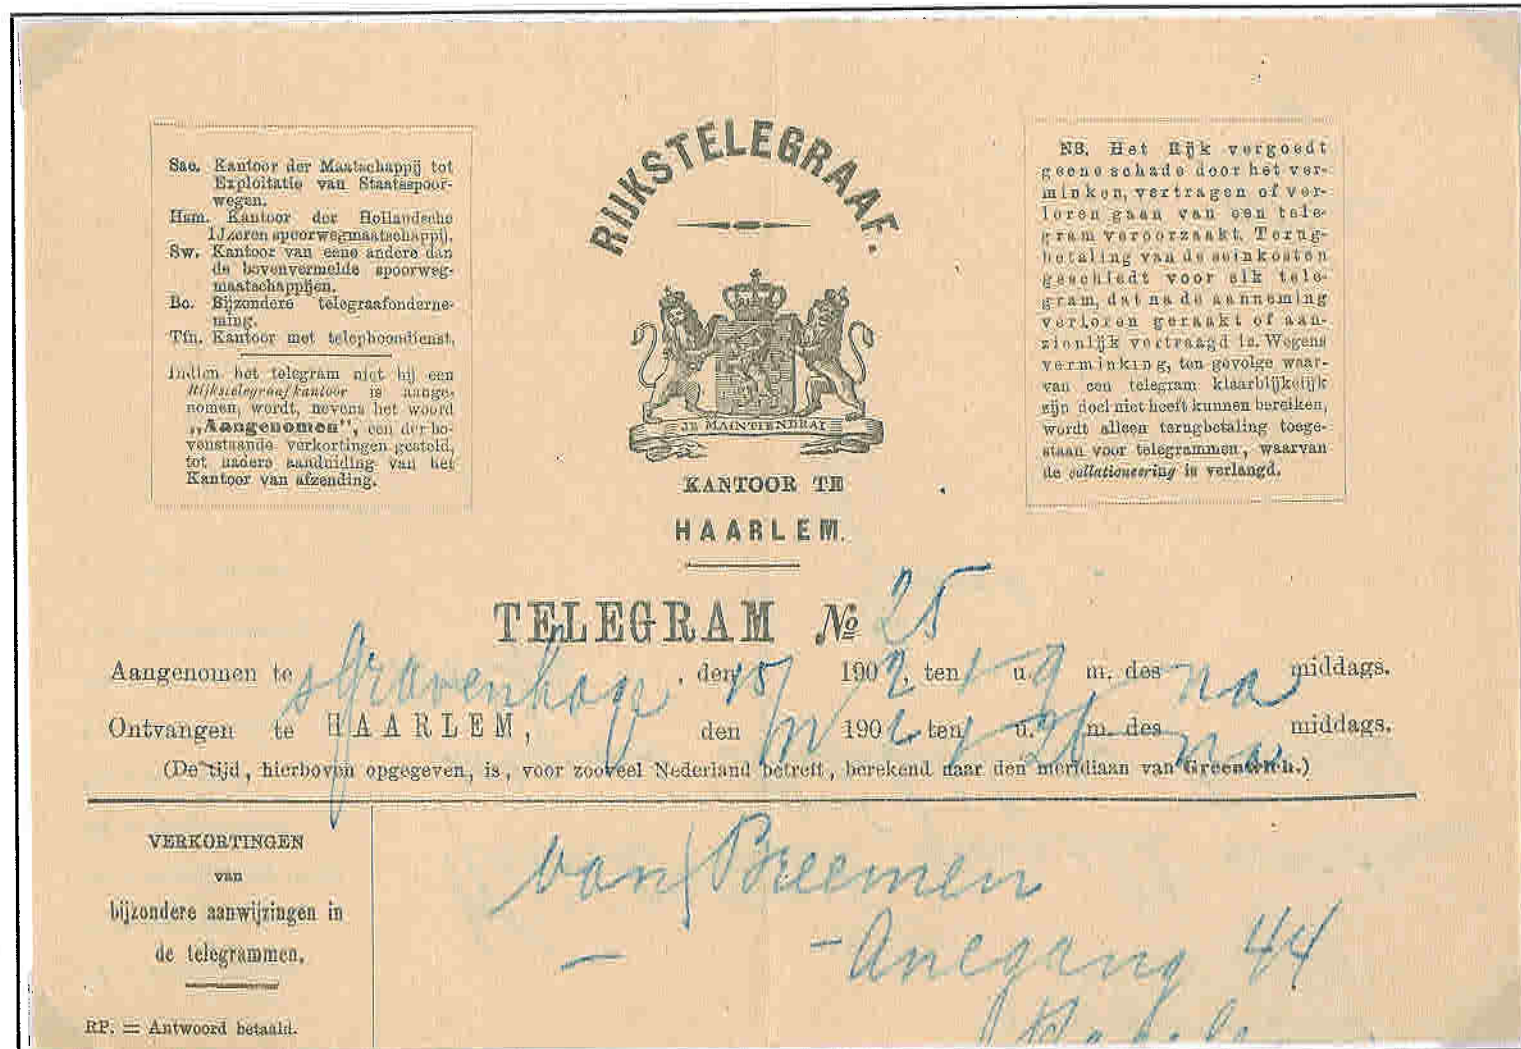 RIJKSTELEGRAAF.
Sac. Kantoor der Maatschappij tot
Exploitatie van Staatsspoor-
wegen.
Hsm. Kantoor der Hollandsche
IJzeren spoorwegmaatschappij.
Sw. Kantoor van eene andere dan
de bovenvermelde spoorweg-
maatschappijen.
Bo. Bijzondere telegraafonderne-
ming.
Tfn. Kantoor met telephoondienst.
Indien het telegram niet bij een
Rijkstelegraafkantoor is aange-
nomen, wordt, nevens het woord
„Aangenomen”, een der bo-
venstaande verkortingen gesteld,
tot nadere aanduiding van het
Kantoor van afzending.
JE MAINTIENDRAI
KANTOOR TE
HAARLEM.
NB. Het Rijk vergoedt
geene schade door het ver-
minken, vertragen of ver-
loren gaan van een tele-
gram veroorzaakt. Terug-
betaling van de seinkosten
geschiedt voor elk tele-
gram, dat na de aanneming
verloren geraakt of aan-
zienlijk vertraagd is. Wegens
verminking, ten gevolge waar-
van een telegram klaarblijkelijk
zijn doel niet heeft kunnen bereiken,
wordt alleen terugbetaling toege-
staan voor telegrammen, waarvan
de collationeering is verlangd.
TELEGRAM No 25
Aangenomen te sGravenhage, den 15/ 1902, ten 1 u. 9 m. des na middags.
Ontvangen te HAARLEM, den 190 ten 1 u. m. des na middags.
(De tijd, hierboven opgegeven, is, voor zooveel Nederland betreft, berekend naar den meridiaan van Greenwich.)
VERKORTINGEN
van
bijzondere aanwijzingen in
de telegrammen.
RP. = Antwoord betaald.
van Breemen
- Anegang 44